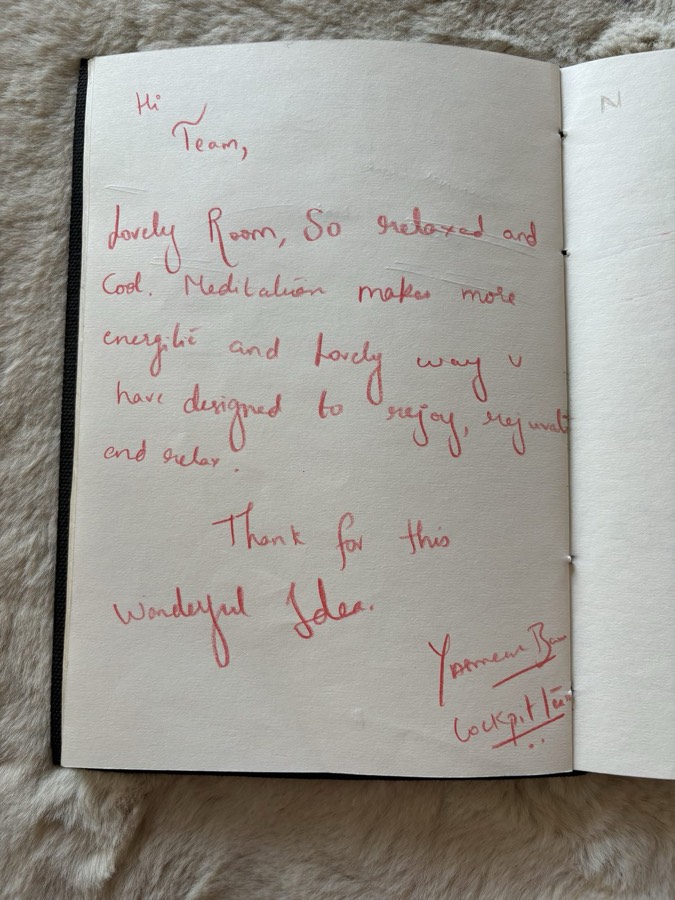 Hi
Team,
Lovely Room, So relaxed and
Cool. Meditation makes more
energitic and Lovely way u
have designed to rejoy, rejuvat
and relax.
Thank for this
Wonderful Idea.
Cockpit
N